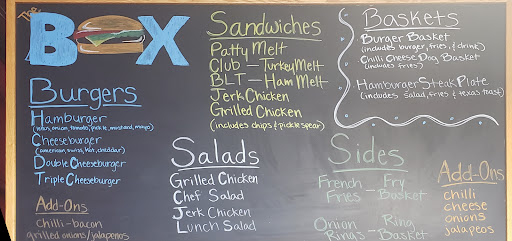 The
BOX
Burgers
Hamburger
(lettuce, onion, tomato, pickle, mustard, mayo)
Cheeseburger
(american, swiss, hot, cheddar)
Double Cheeseburger
Triple Cheeseburger
Add-Ons
chilli - bacon
grilled onions/jalapenos
Sandwiches
Patty Melt
Club - Turkey Melt
BLT - Ham Melt
Jerk Chicken
Grilled Chicken
(includes chips & pickle spear)
Salads
Grilled Chicken
Chef Salad
Jerk Chicken
Lunch Salad
Baskets
Burger Basket
(includes burger, fries, & drink)
Chilli Cheese Dog Basket
(includes fries)
Hamburger Steak Plate
(includes Salad, fries & texas toast)
Sides
French Fries - Fry Basket
Onion Rings - Ring Basket
Add-Ons
chilli
cheese
onions
jalapenos